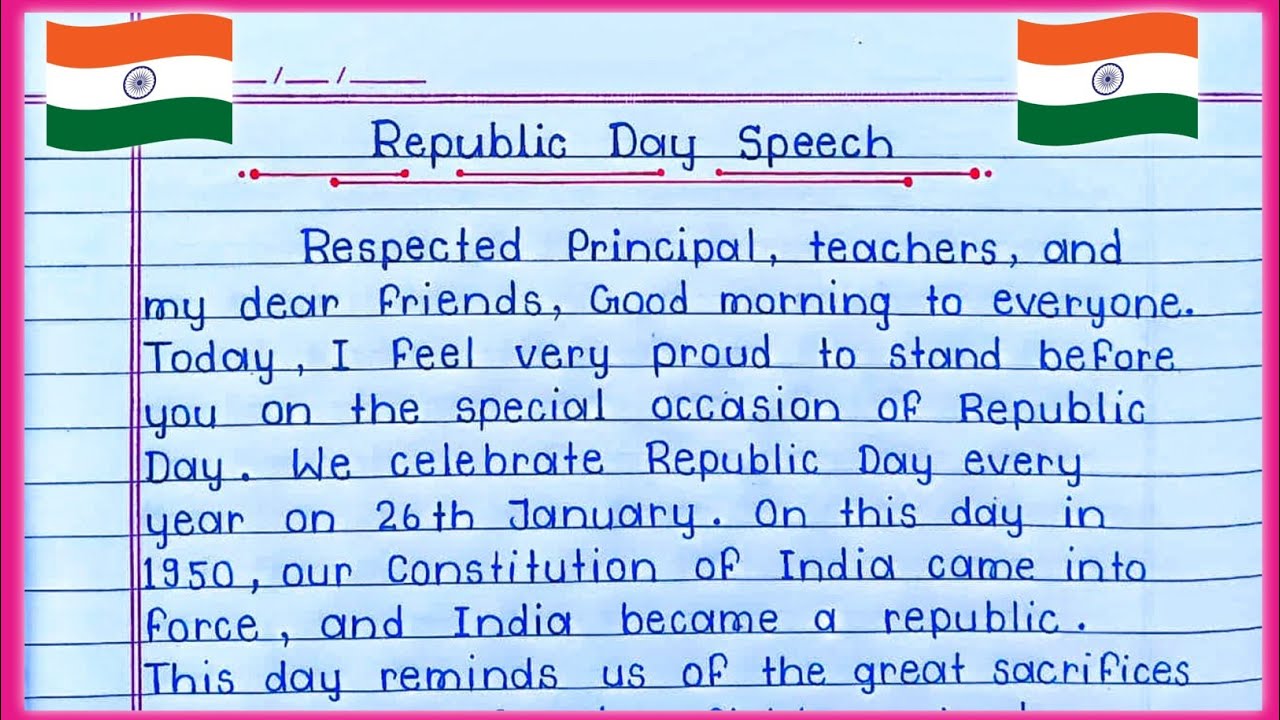 __/__/____
Republic Day Speech
Respected Principal, teachers, and
my dear friends, Good morning to everyone.
Today, I feel very proud to stand before
you on the special occasion of Republic
Day. We celebrate Republic Day every
year on 26th January. On this day in
1950, our Constitution of India came into
force, and India became a republic.
This day reminds us of the great sacrifices